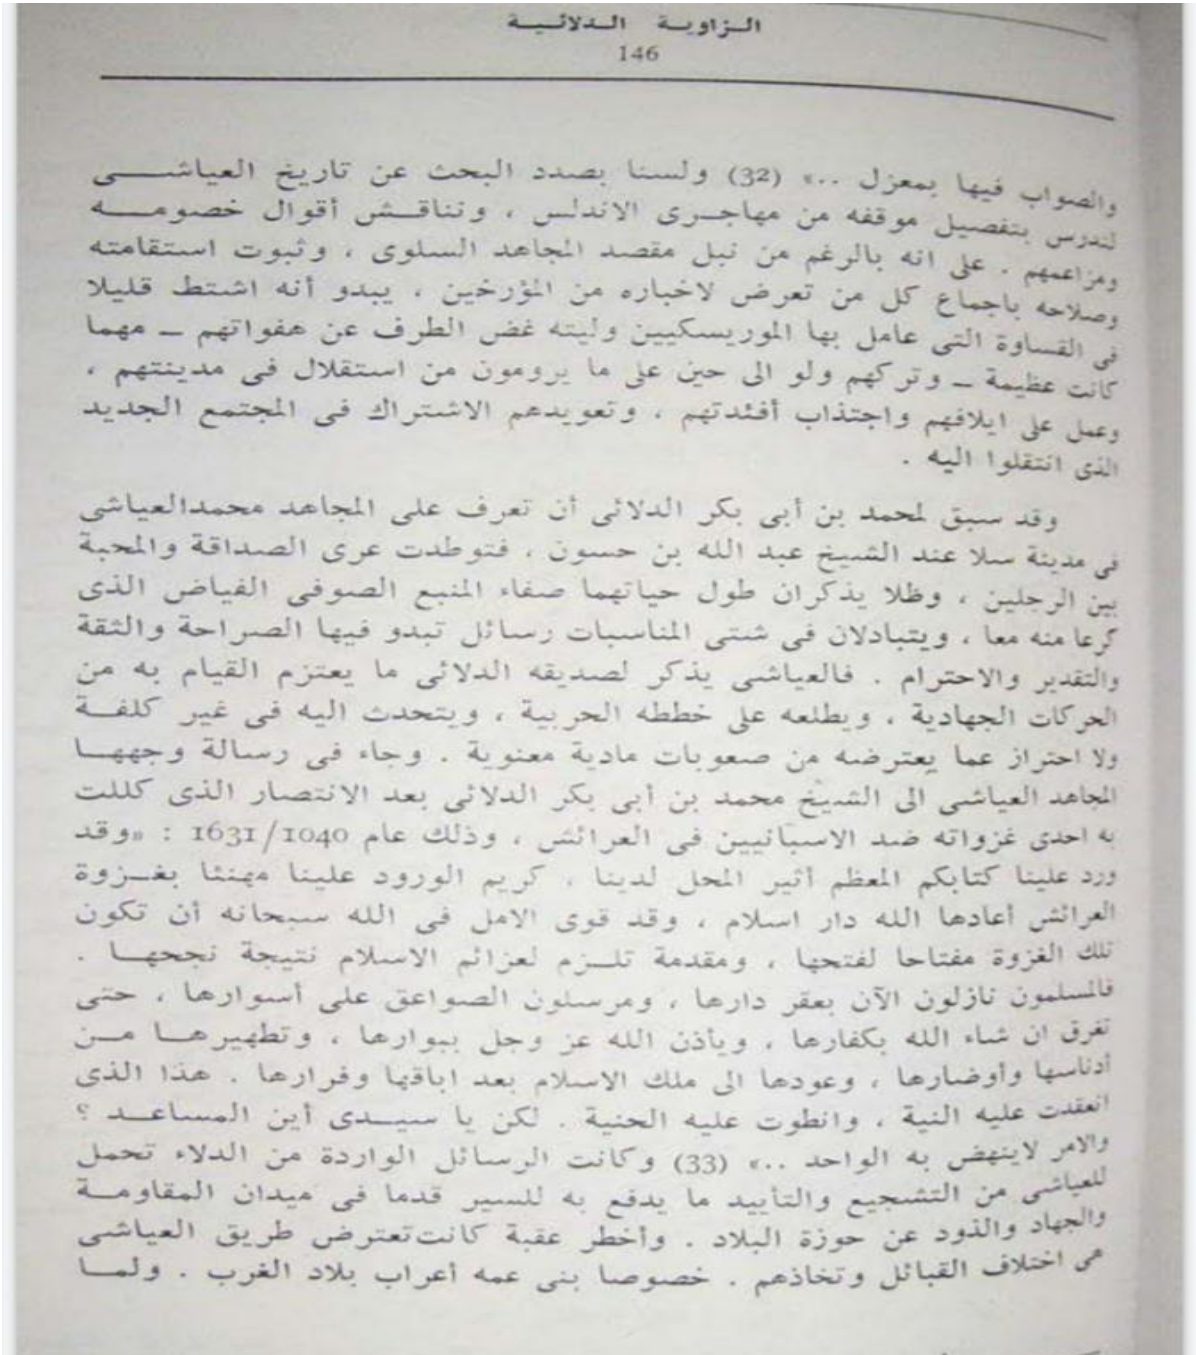 الزاوية الدلائية
146
والصواب فيها بمعزل ..» (32) ولسنا بصدد البحث عن تاريخ العياشي
لندرس بتفصيل موقفه من مهاجرى الاندلس ، ونناقش أقوال خصومه
ومزاعمهم . على انه بالرغم من نبل مقصد المجاهد السلوى ، وثبوت استقامته
وصلاحه باجماع كل من تعرض لاخباره من المؤرخين ، يبدو أنه اشتط قليلا
فى القساوة التى عامل بها الموريسكيين وليته غض الطرف عن هفواتهم — مهما
كانت عظيمة — وتركهم ولو الى حين على ما يرومون من استقلال فى مدينتهم ،
وعمل على ايلافهم واجتذاب أفئدتهم ، وتعويدهم الاشتراك فى المجتمع الجديد
الذى انتقلوا اليه .
وقد سبق لمحمد بن أبى بكر الدلائى أن تعرف على المجاهد محمدالعياشى
فى مدينة سلا عند الشيخ عبد الله بن حسون ، فتوطدت عرى الصداقة والمحبة
بين الرجلين ، وظلا يذكران طول حياتهما صفاء المنبع الصوفى الفياض الذى
كرعا منه معا ، ويتبادلان فى شتى المناسبات رسائل تبدو فيها الصراحة والثقة
والتقدير والاحترام . فالعياشى يذكر لصديقه الدلائى ما يعتزم القيام به من
الحركات الجهادية ، ويطلعه على خططه الحربية ، ويتحدث اليه فى غير كلفة
ولا احتراز عما يعترضه من صعوبات مادية معنوية . وجاء فى رسالة وجهها
المجاهد العياشى الى الشيخ محمد بن أبى بكر الدلائى بعد الانتصار الذى كللت
به احدى غزواته ضد الاسبانيين فى العرائش ، وذلك عام 1631/1040 : «وقد
ورد علينا كتابكم المعظم أثير المحل لدينا ، كريم الورود علينا مهنئا بغزوة
العرائش أعادها الله دار اسلام ، وقد قوى الامل فى الله سبحانه أن تكون
تلك الغزوة مفتاحا لفتحها ، ومقدمة تلزم لعزائم الاسلام نتيجة نجحها .
فالمسلمون نازلون الآن بعقر دارها ، ومرسلون الصواعق على أسوارها ، حتى
تغرق ان شاء الله بكفارها ، ويأذن الله عز وجل ببوارها ، وتطهيرها من
أدناسها وأوضارها ، وعودها الى ملك الاسلام بعد اباقها وفرارها . هذا الذى
انعقدت عليه النية ، وانطوت عليه الحنية . لكن يا سيدى أين المساعد ؟
والامر لاينهض به الواحد ..» (33) وكانت الرسائل الواردة من الدلاء تحمل
للعياشى من التشجيع والتأييد ما يدفع به للسير قدما فى ميدان المقاومة
والجهاد والذود عن حوزة البلاد . وأخطر عقبة كانت تعترض طريق العياشى
هى اختلاف القبائل وتخاذهم . خصوصا بنى عمه أعراب بلاد الغرب . ولما